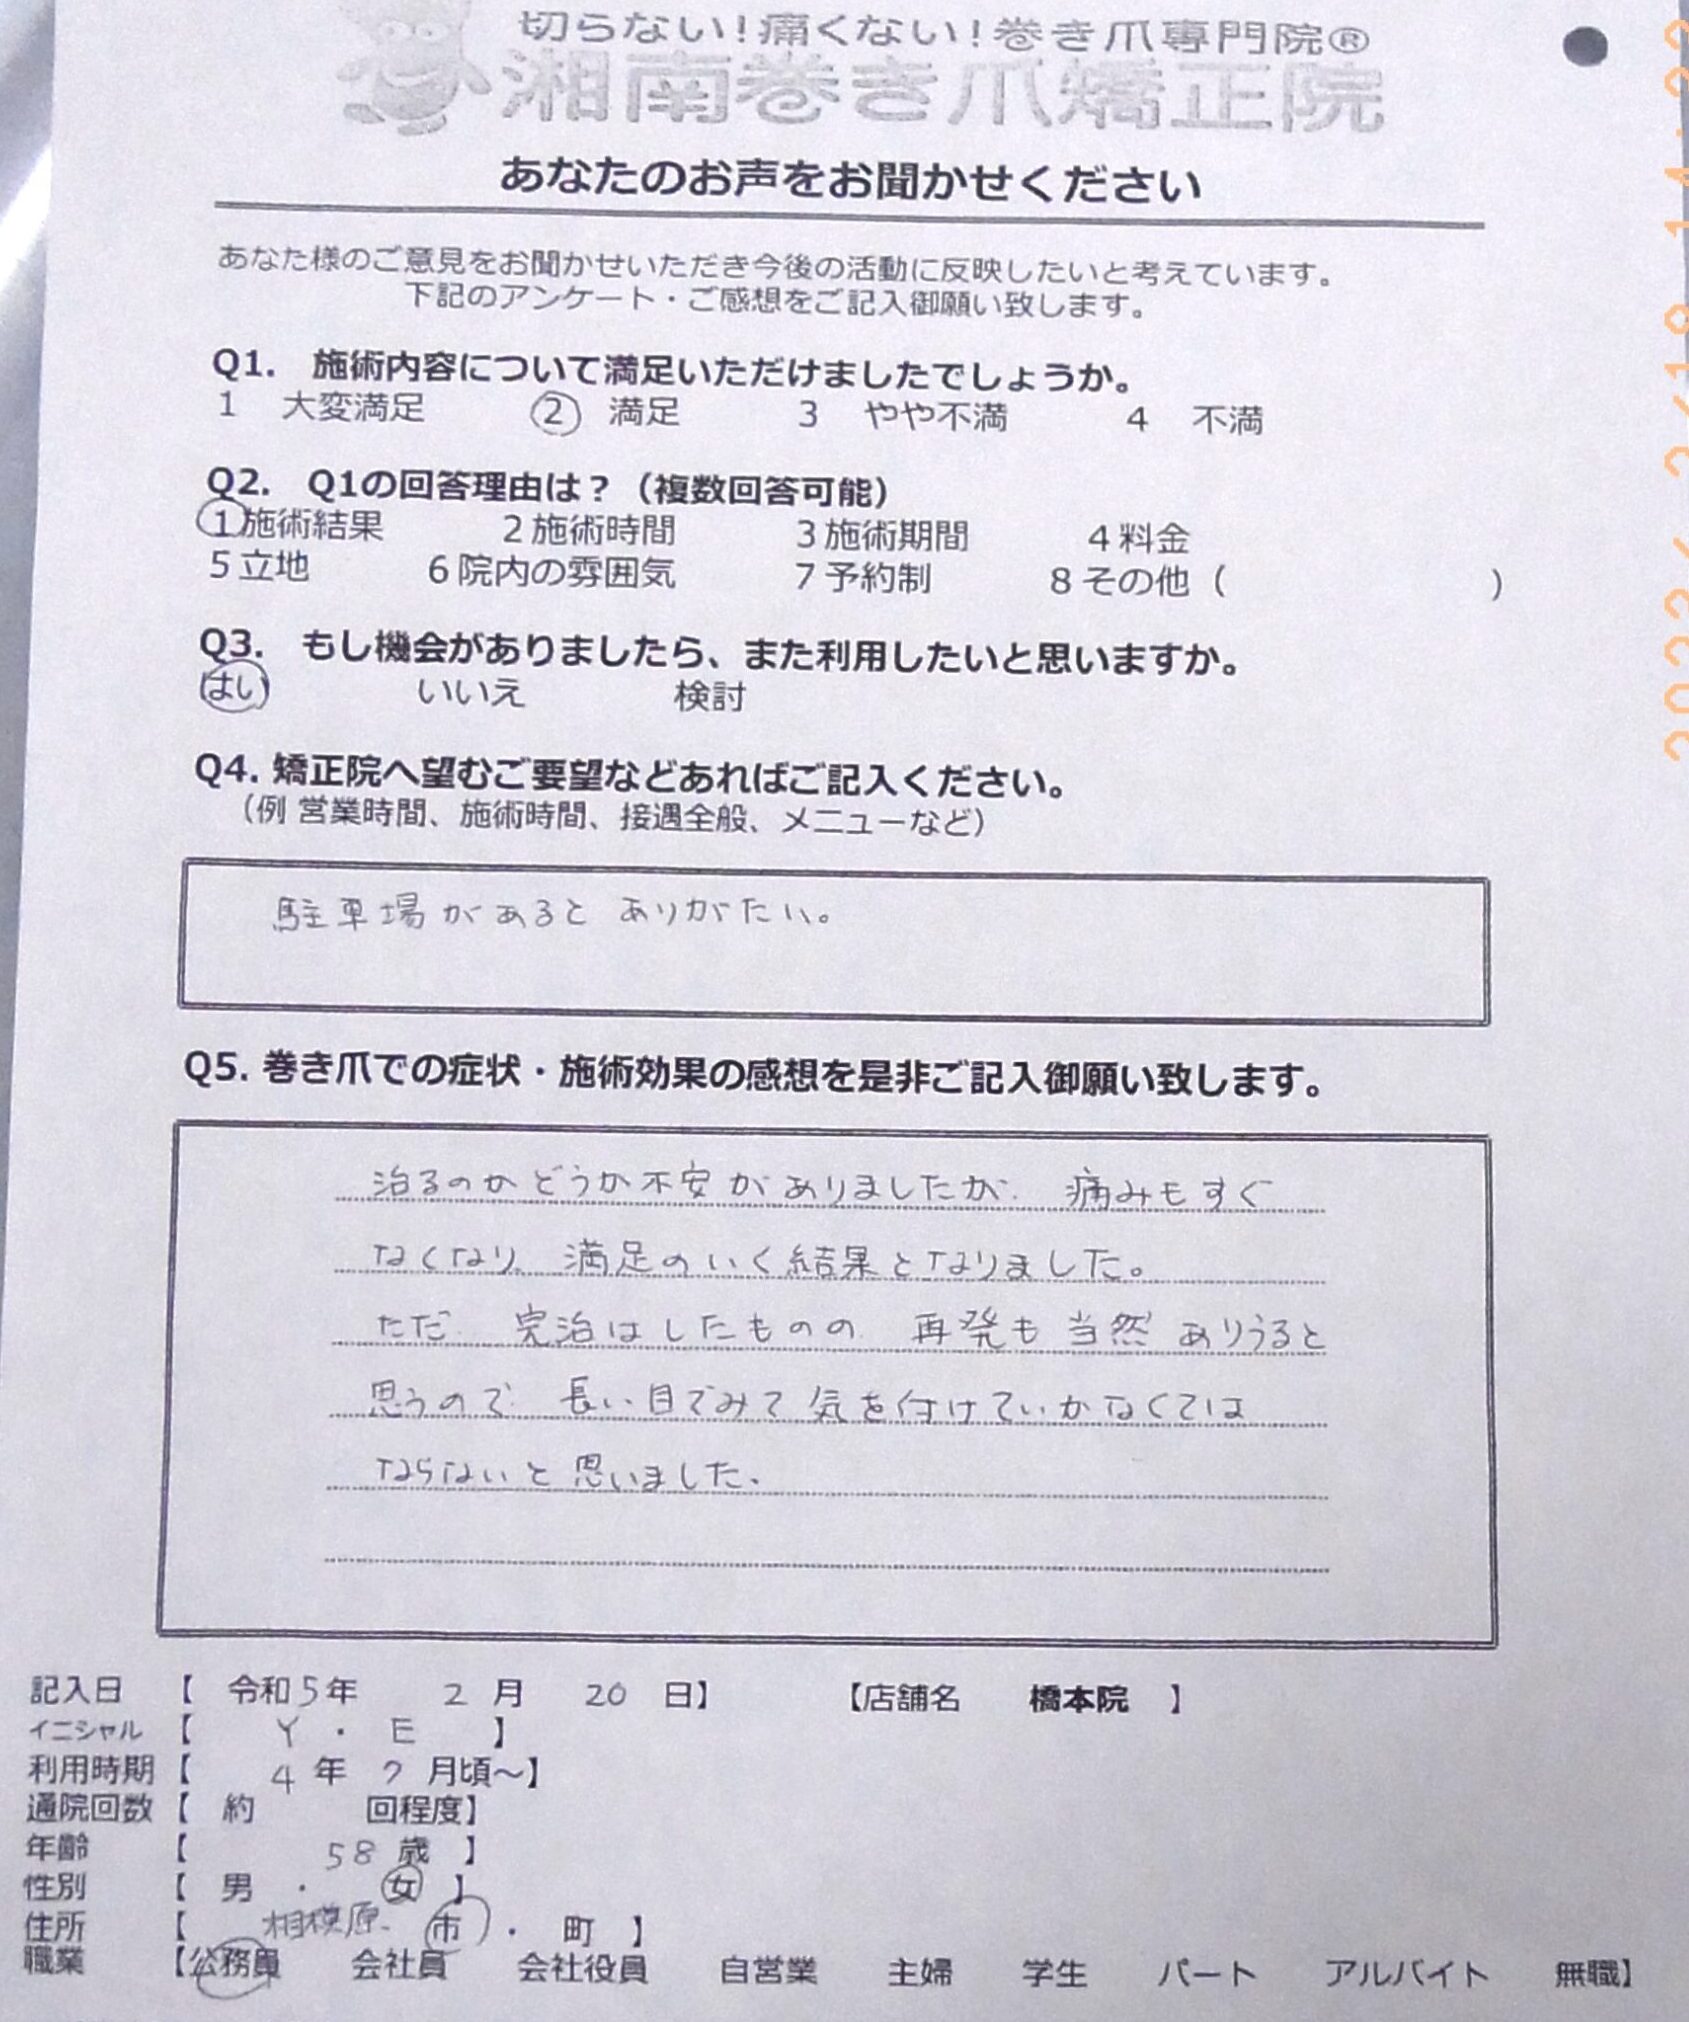 切らない!痛くない!巻き爪専門院®
湘南巻き爪矯正院
あなたのお声をお聞かせください
あなた様のご意見をお聞かせいただき今後の活動に反映したいと考えています。
下記のアンケート・ご感想をご記入御願い致します。
Q1. 施術内容について満足いただけましたでしょうか。
1 大変満足 2 満足 3 やや不満 4 不満
Q2. Q1の回答理由は?(複数回答可能)
1施術結果 2施術時間 3施術期間 4料金
5立地 6院内の雰囲気 7予約制 8その他( )
Q3. もし機会がありましたら、また利用したいと思いますか。
はい いいえ 検討
Q4. 矯正院へ望むご要望などあればご記入ください。
(例 営業時間、施術時間、接遇全般、メニューなど)
駐車場があると ありがたい。
Q5. 巻き爪での症状・施術効果の感想を是非ご記入御願い致します。
治るのかどうか不安がありましたが、痛みもすぐ
なくなり、満足のいく結果となりました。
ただ、完治はしたものの、再発も当然ありうると
思うので、長い目でみて気を付けていかなくては
ならないと思いました。
記入日 【 令和5年 2月 20日】 【店舗名 橋本院 】
イニシャル 【 Y・E 】
利用時期 【 4年 月頃~】
通院回数 【 約 回程度】
年齢 【 58歳 】
性別 【 男・女 】
住所 【 相模原 市・町 】
職業 【公務員 会社員 会社役員 自営業 主婦 学生 パート アルバイト 無職】